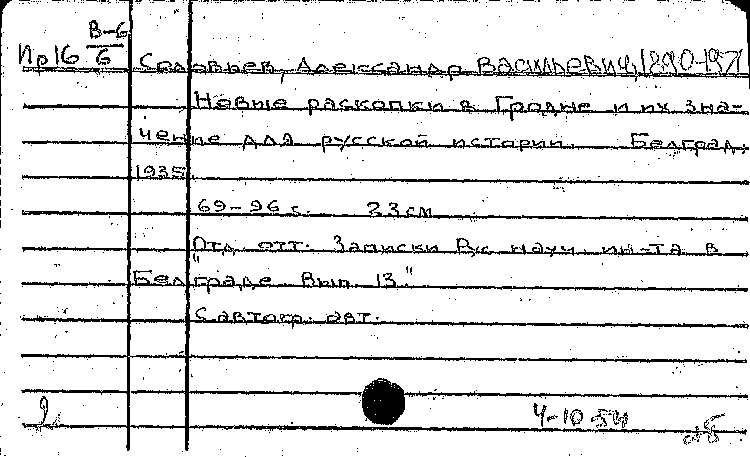 В-6
Пр16 6 Соловьев, Александр Васильевич, 1890-1971
Новые раскопки в Гродне и их зна-
чение для русской истории. Белград,
1935.
69-96 с. 23 см
Отд. отт. "Записки Рус. науч. ин-та в
Белграде. Вып. 13."
С автогр. авт.
2
4-10-54